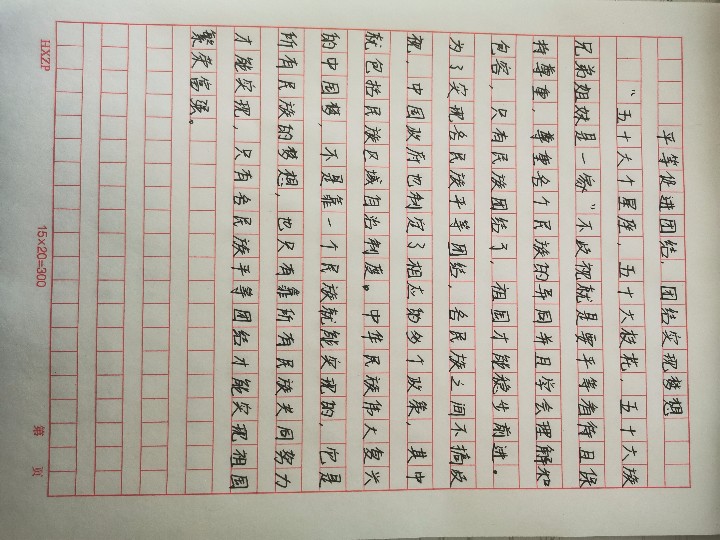 平等促进团结，团结实现梦想
“五十六个星座，五十六枝花，五十六族
兄弟姐妹是一家”不歧视就是要平等看待且保
持尊重，尊重各个民族的异同并且学会理解和
包容，只有民族团结了，祖国才能稳步前进。
为了实现各民族平等团结，各民族之间不搞歧
视，中国政府也制定了相应的多个政策，其中
就包括民族区域自治制度。中华民族伟大复兴
的中国梦，不是靠一个民族就能实现的，它是
所有民族的梦想，也只有靠所有民族共同努力
才能实现，只有各民族平等团结才能实现祖国
繁荣富强。
HXZP 15×20=300 第 页